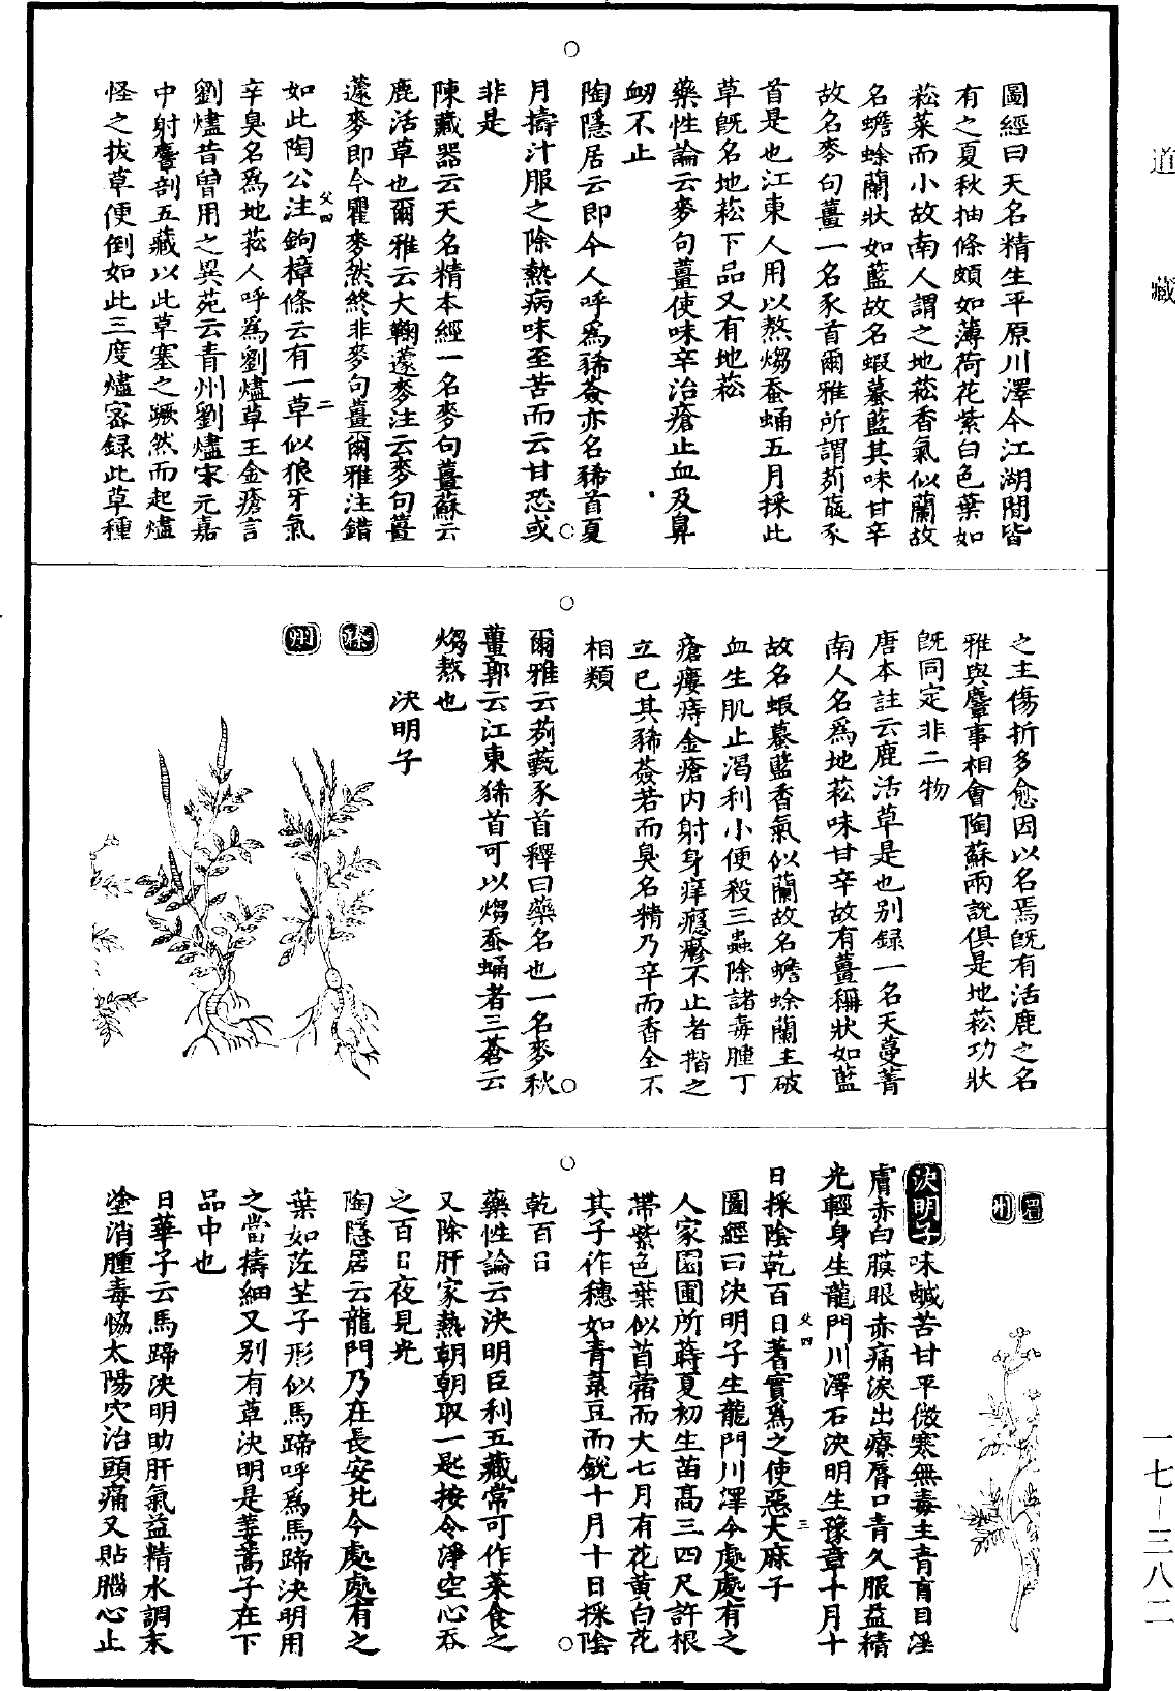 道藏
圖經曰天名精生平原川澤今江湖間皆
有之夏秋抽條頗如薄荷花紫白色葉如
菘菜而小故南人謂之地菘香氣似蘭故
名蟾蜍蘭狀如藍故名蝦蟇藍其味甘辛
故名麥句薑一名豕首爾雅所謂茢薽豕
首是也江東人用以熬煼蚕蛹五月採此
草旣名地菘下品又有地菘
藥性論云麥句薑使味辛治瘡止血及鼻
衂不止
陶隱居云即今人呼爲豨薟亦名豨首夏
月擣汁服之除熱病味至苦而云甘恐或
非是
陳藏器云天名精本經一名麥句薑蘇云
鹿活草也爾雅云大鞠蘧麥注云麥句薑
蘧麥即今瞿麥然終非麥句薑爾雅注錯
如此陶公注鉤樟條云有一草似狼牙氣
父四
二
辛臭名爲地菘人呼爲劉㸂草王金瘡言
劉㸂昔曾用之異苑云青州劉㸂宋元嘉
中射麞剖五藏以此草塞之蹶然而起㸂
怪之拔草便倒如此三度㸂密録此草種
之主傷折多愈因以名焉旣有活鹿之名
雅與麞事相會陶蘇兩說俱是地菘功狀
旣同定非二物
唐本註云鹿活草是也别録一名天蔓菁
南人名爲地菘味甘辛故有薑稱狀如藍
故名蝦蟇藍香氣似蘭故名蟾蜍蘭主破
血生肌止渴利小便殺三蟲除諸毒腫丁
瘡瘻痔金瘡内射身痒癮疹不止者揩之
立已其豨薟若而臭名精乃辛而香全不
相類
爾雅云茢薽豕首釋曰藥名也一名麥秋
薑郭云江東豨首可以煼蚕蛹者三蒼云
煼熬也
決明子
滁
州
眉
州
決明子味鹹苦甘平微寒無毒主青盲目淫
膚赤白膜眼赤痛淚出療脣口青久服益精
光輕身生龍門川澤石決明生豫章十月十
日採陰乾百日蓍實爲之使惡大麻子
父四
三
圖經曰決明子生龍門川澤今處處有之
人家園圃所蒔夏初生苗高三四尺許根
帶紫色葉似苜蓿而大七月有花黄白花
其子作穗如青菉豆而銳十月十日採陰
乾百日
藥性論云決明臣利五藏常可作菜食之
又除肝家熱朝朝取一匙挼令淨空心吞
之百日夜見光
陶隱居云龍門乃在長安北今處處有之
葉如茳芏子形似馬蹄呼爲馬蹄決明用
之當擣細又别有草決明是萋蒿子在下
品中也
日華子云馬蹄決明助肝氣益精水調末
塗消腫毒㥘太陽穴治頭痛又貼腦心止
一七－三八二